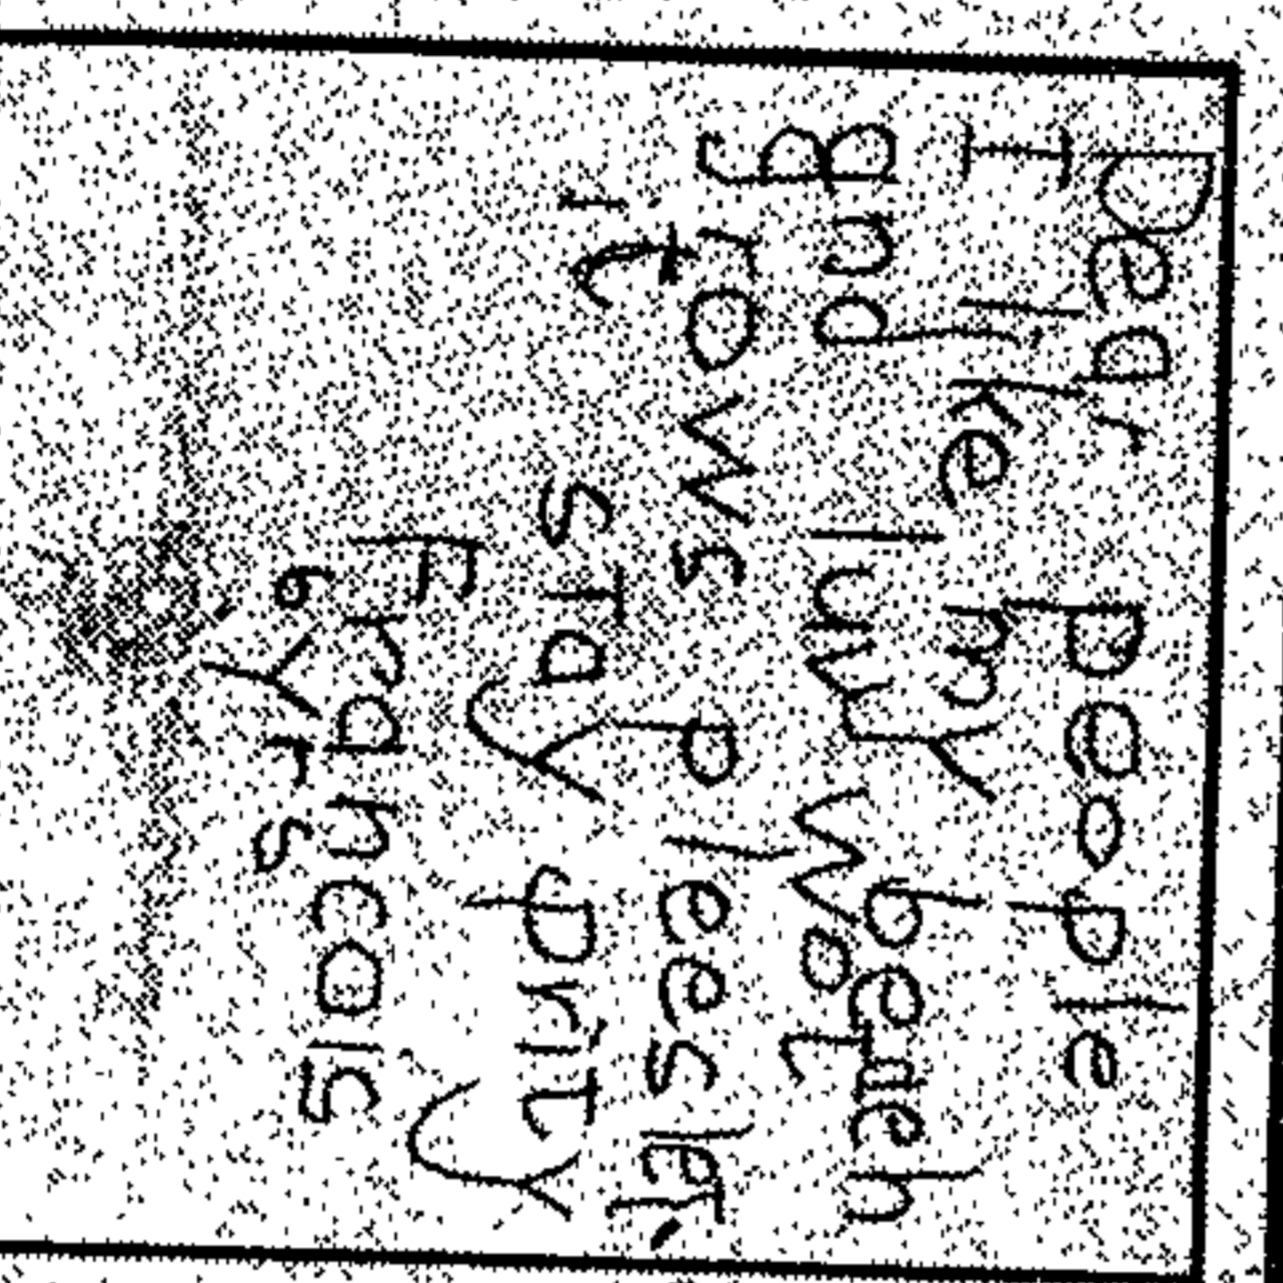 Dear people
I like my beach
and luvy wot
grows plees let
it stay prity
Francois
6 yrs